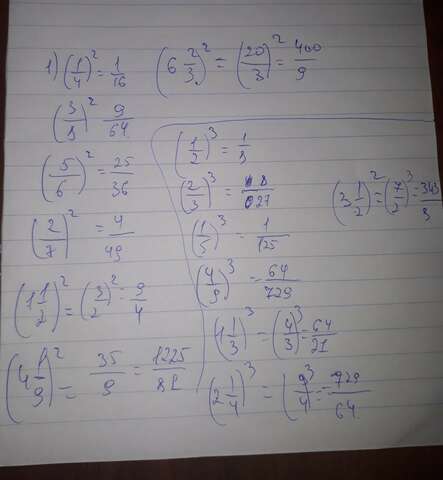 1) (1/4)² = 1/16
(6 2/3)² = (20/3)² = 400/9
(3/8)² 9/64
(5/6)² = 25/36
(2/7)² = 4/49
(1 1/2)² = (3/2)² = 9/4
(4 1/9)² = 35/9 = 1225/81
(1/2)³ = 1/8
(2/3)³ = 8/27
(1/5)³ = 1/125
(4/9)³ = 64/729
(1 1/3)³ = (4/3)³ = 64/21
(2 1/4)³ = (9/4)³ = 729/64
(3 1/2)² = (7/2)³ = 343/8